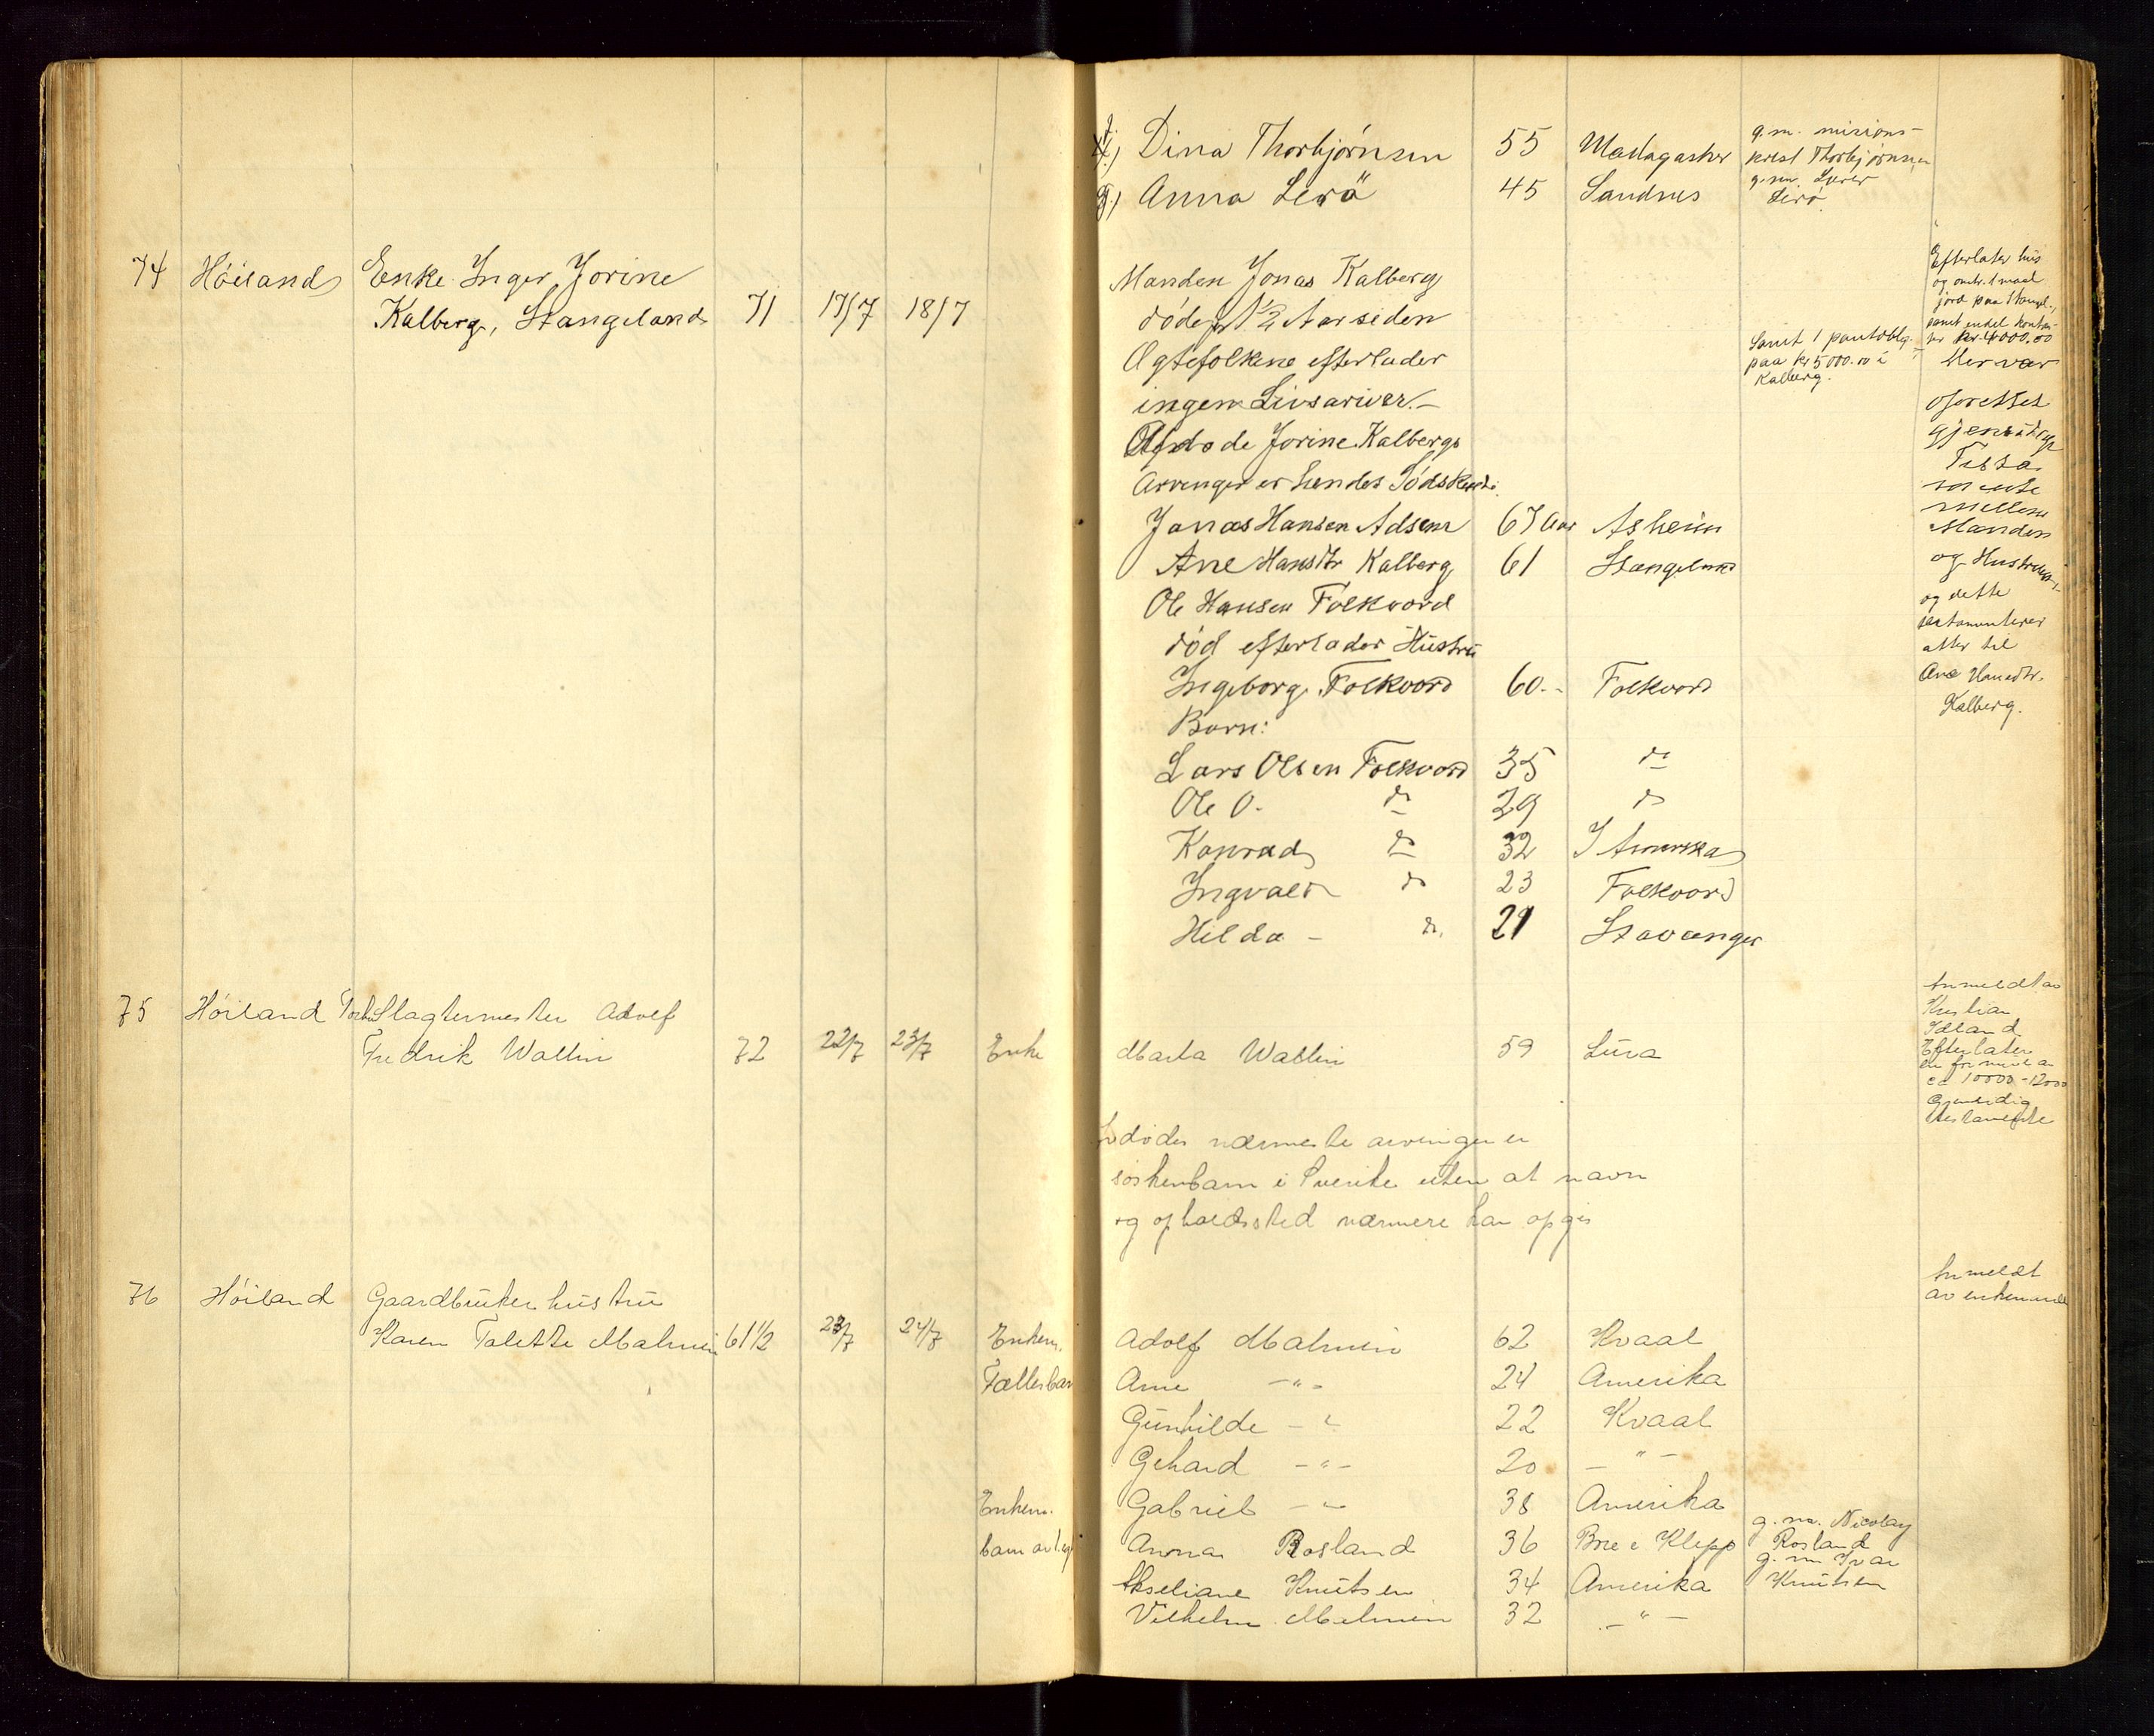 f.) Dina Thorbjørnsen 55 Madagaskar g.m. misions-
prest Thorbjørnsen
g.) Anna Lerö 45 Sandnes g.m. Lærer
Lerö.
74 Höiland Enke Inger Jorine
Kalberg, Stangeland 71 17/7 18/7
Manden Jonas Kalberg
död p 1 1/2 Aar siden
Ægtefolkene efterlader
ingen Livsariver.-
Afdöde Jorine Kalbergs
Arvinger er hendes Södskende
Jonas Hansen Adsem 67 Aar Asheim
Ane Hansdtr Kalberg 61 Stangeland
Ole Hansen Folkvord
död efterlader Hustru
Ingeborg Folkvord 60.- Folkvord
Børn:
Lars Olsen Folkvord 35 do
Ole O. do 29 do
Konrad do 32 I Amerika
Ingvald do 23 Folkvord
Hilda - do. 21 Stavanger
Samt 1 pantoblg.
paa kr 5000.00 i
Kalberg.
Efterlater hus
og omtr. 1 maal
jord paa Stangel.,
samt endel kontan-
ter kr. 4000.00
Her var
oprettet
gjensidige
Testa
mente
mellem
Manden
og Hustruen,
og dette
testamenterer
atter til
Ane Hansdtr.
Kalberg.
75 Höiland Slagtermester Adolf
Fredrik Wallin 72 22/7 23/7 Enke Marta Wallin 59 Lura
Anmeldt av
Kristian
Idland
Efterlater
en formue av
ca 10000-12000
Gjensidig
testamente
dødes nærmeste arvinger er
söskenbarn i Sverike uten at navn
og opholdssted nærmere kan opgis
76 Höiland Gaardbruker hustru
Karen Talette Malmin 61 1/2 23/7 24/7 Enkem. Adolf Malmin 62 Kvaal
Anmeldt
av enkemand
Fællesbarn Arne -"- 24 Amerika
Gunhilde -"- 22 Kvaal
Gehard -"- 20 -"-
Enkem. Gabriel -"- 38 Amerika
barn av 1. eg. Anna Rosland 36 Bore i Klepp g.m. Nicolay
Rosland
Akseliane Knutsen 34 Amerika g.m. Ivar
Knutsen
Vilhelm Malmin 32 -"-